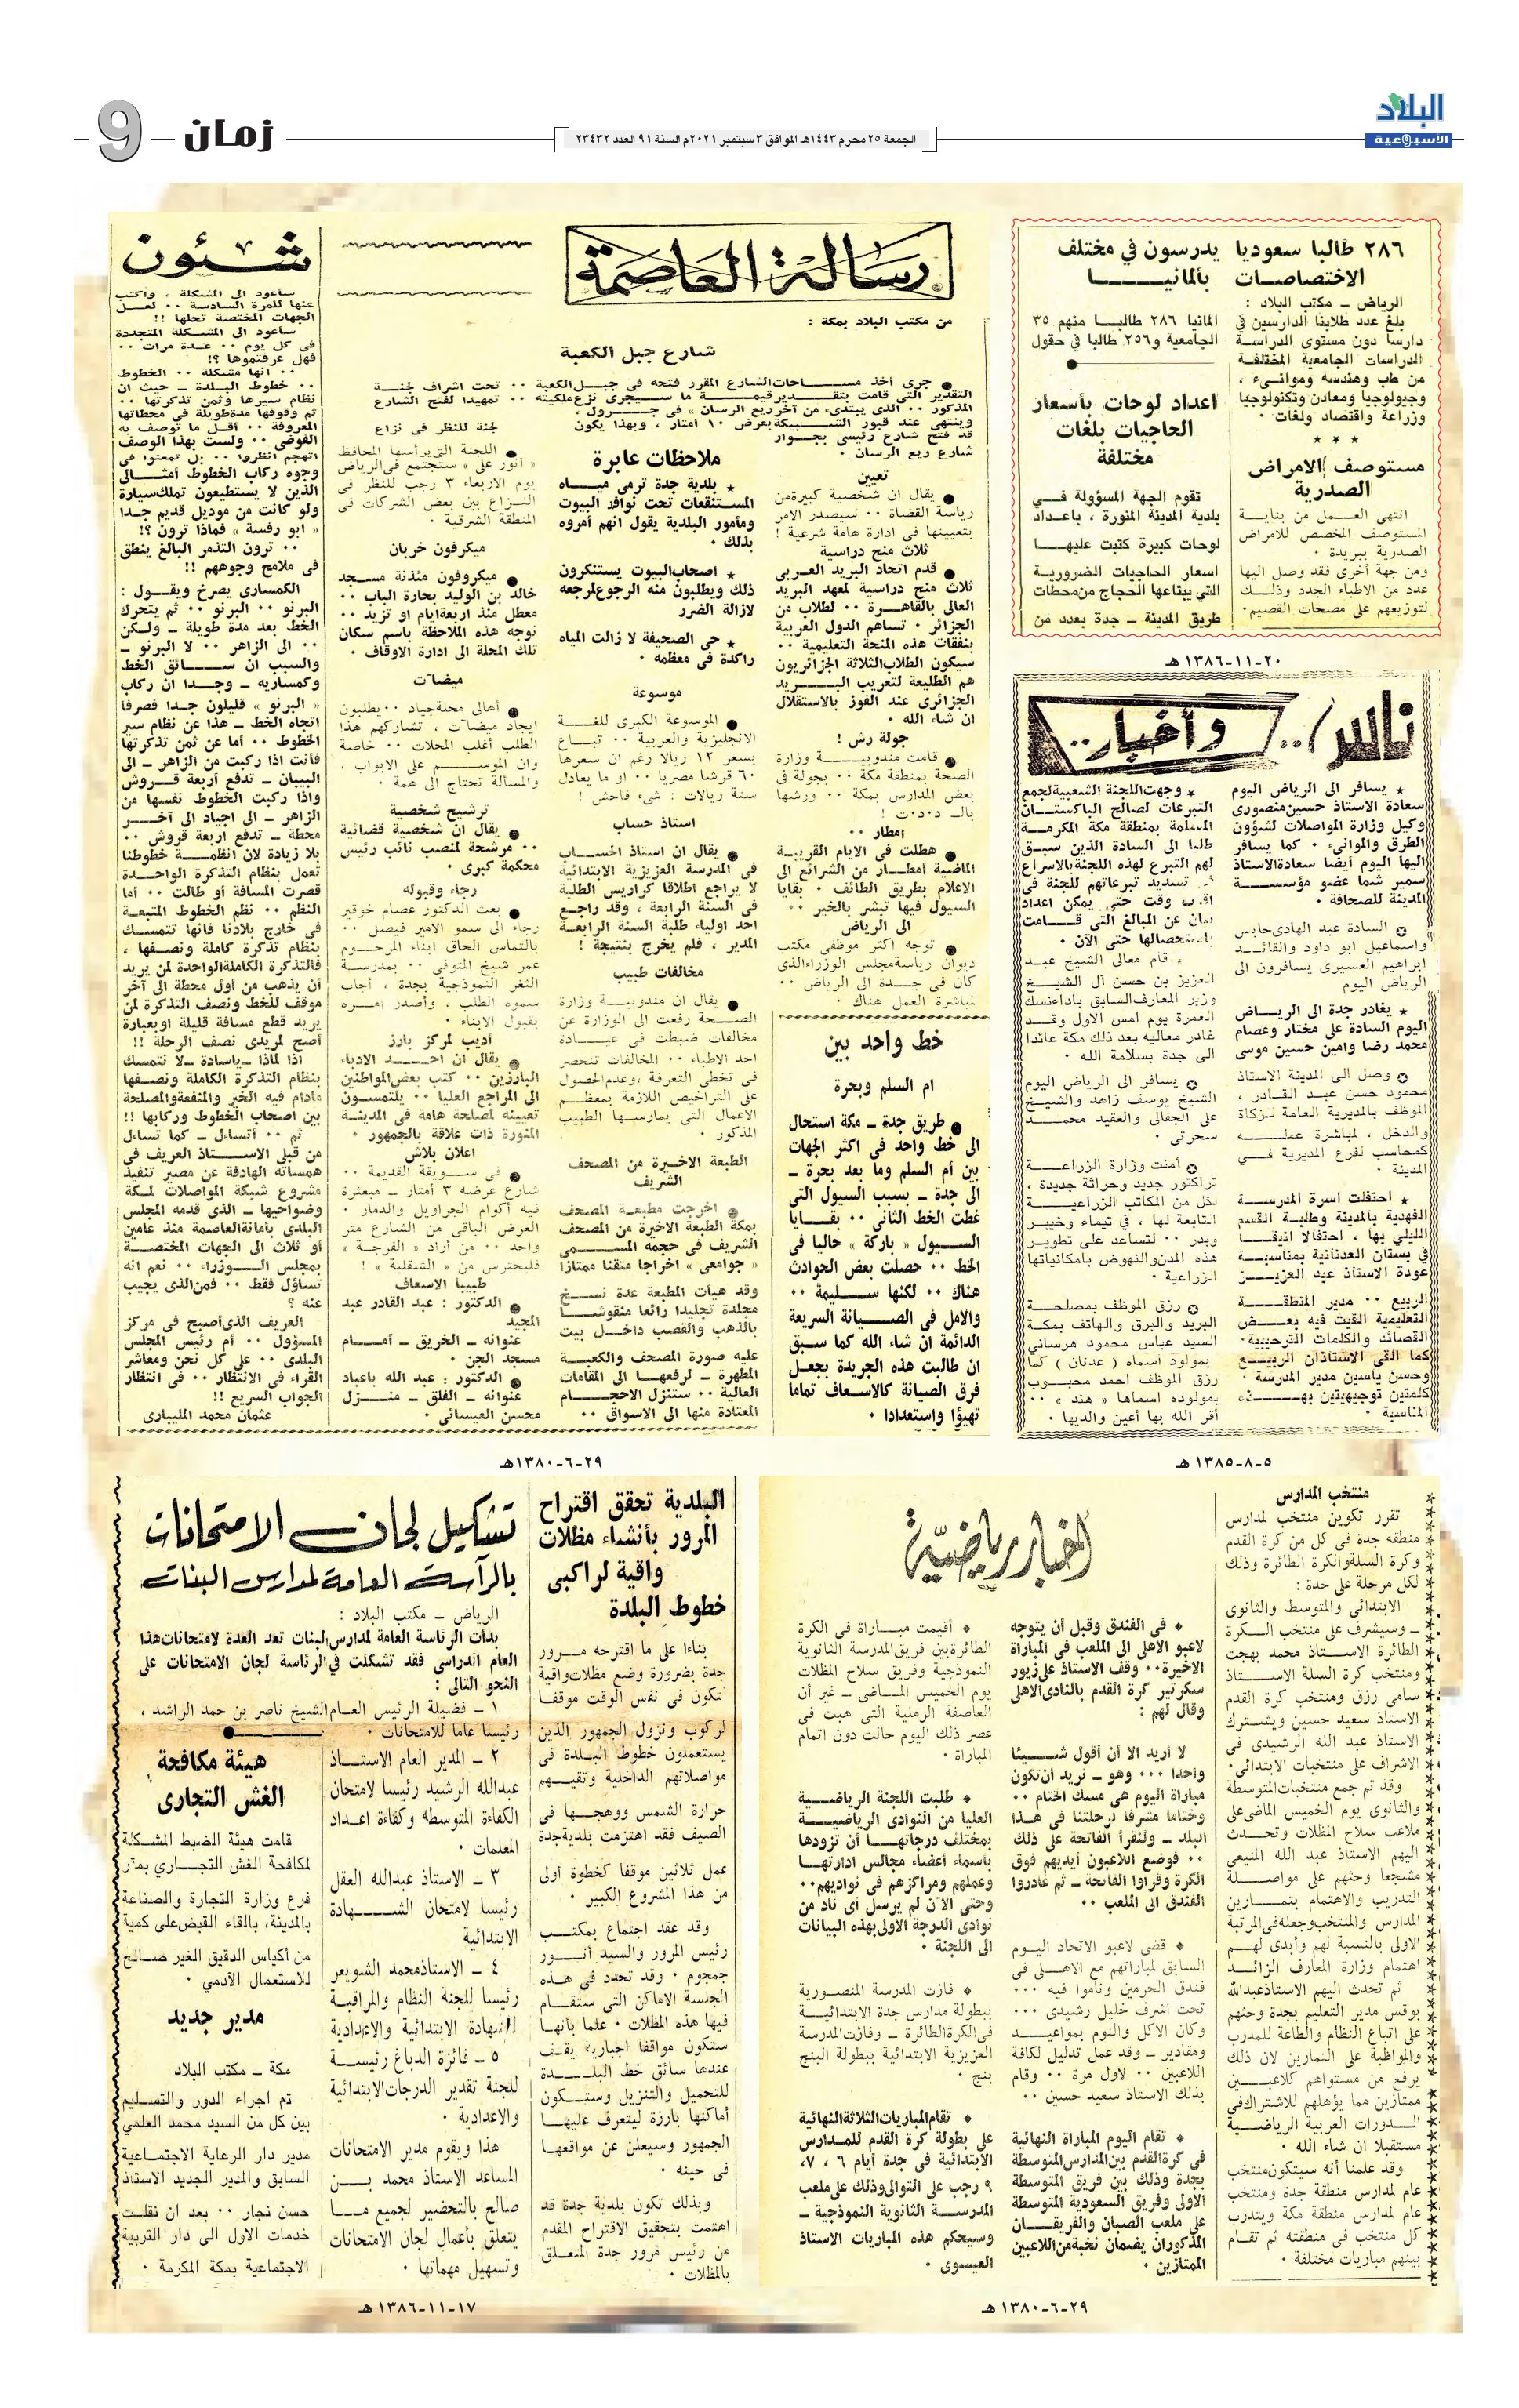 البلاد
الأسبوعية
الجمعة ٢٥ محرم ١٤٤٣هـ الموافق ٣ سبتمبر ٢٠٢١م السنة ٩١ العدد ٢٣٤٣٢
زمان
9
٢٨٦ طالبا سعوديا يدرسون في مختلف
الاختصاصات بألمانيا
الرياض – مكتب البلاد :
بلغ عدد طلابنا الدارسين في
المانيا ٢٨٦ طالبا منهم ٣٥
دارسا دون مستوى الدراسة
الجامعية و٢٥٦ طالبا في حقول
الدراسات الجامعية المختلفة
من طب وهندسة وموانىء ،
وجيولوجيا ومعادن وتكنولوجيا
وزراعة واقتصاد ولغات .
مستوصف الامراض
الصدرية
انتهى العمل من بناية
المستوصف المخصص للامراض
الصدرية ببريدة .
ومن جهة أخرى فقد وصل اليها
عدد من الاطباء الجدد وذلك
لتوزيعهم على مصحات القصيم .
اعداد لوحات بأسعار
الحاجيات بلغات
مختلفة
تقوم الجهة المسؤولة في
بلدية المدينة المنورة ، باعداد
لوحات كبيرة كتبت عليها
اسعار الحاجيات الضرورية
التي يبتاعها الحجاج من محطات
طريق المدينة – جدة بعدد من
٢٠-١١-١٣٨٦ هـ
ناس .. وأخبار ..
★ يسافر الى الرياض اليوم
سعادة الاستاذ حسين منصورى
وكيل وزارة المواصلات لشؤون
الطرق والموانىء . كما يسافر
اليها اليوم أيضا سعادة الاستاذ
سمير شما عضو مؤسسة
المدينة للصحافة .
السادة عبد الهادى حابس
واسماعيل ابو داود والقائد
ابراهيم العسيرى يسافرون الى
الرياض اليوم
★ يغادر جدة الى الرياض
اليوم السادة على مختار وعصام
محمد رضا وامين حسين موسى
وصل الى المدينة الاستاذ
محمود حسن عبد القادر ،
الموظف بالمديرية العامة للزكاة
والدخل ، لمباشرة عمله
كمحاسب لفرع المديرية في
المدينة .
★ احتفلت اسرة المدرسة
الفهدية بالمدينة وطلبة القسم
الليلي بها ، احتفالا انيقا
في بستان العدنانية بمناسبة
عودة الاستاذ عبد العزيز
الربيع .. مدير المنطقة
التعليمية القيت فيه بعض
القصائد والكلمات الترحيبية .
كما القى الاستاذان الربيع
وحسن ياسين مدير المدرسة .
كلمتين توجيهيتين بهذه
المناسبة .
★ وجهت اللجنة الشعبية لجمع
التبرعات لصالح الباكستان
المسلمة بمنطقة مكة المكرمة
طلبا الى السادة الذين سبق
لهم التبرع لهذه اللجنة بالاسراع
تسديد تبرعاتهم للجنة في
وقت حتى يمكن اعداد
بيان عن المبالغ التي قامت
حتى الآن .
قام معالى الشيخ عبد
العزيز بن حسن آل الشيخ
وزير المعارف السابق باداء نسك
العمرة يوم امس الاول وقد
غادر معاليه بعد ذلك مكة عائدا
الى جدة بسلامة الله .
يسافر الى الرياض اليوم
الشيخ يوسف زاهد والشيخ
على الجفالى والعقيد محمد
سحرتى .
أمنت وزارة الزراعة
تراكتور جديد وحراثة جديدة ،
لكل من المكاتب الزراعية
التابعة لها ، في تيماء وخيبر
وبدر .. لتساعد على تطوير
هذه المدن والنهوض بامكانياتها
الزراعية .
رزق الموظف بمصلحة
البريد والبرق والهاتف بمكة
السيد عباس محمود هرسانى
بمولود أسماه ( عدنان ) كما
رزق الموظف احمد محبوب
بمولوده اسماها « هند » ..
أقر الله بها أعين والديها .
٥-٨-١٣٨٥ هـ
رسالة العاصمة
من مكتب البلاد بمكة :
شارع جبل الكعبة
● جرى أخذ مساحات الشارع المقرر فتحه في جبل الكعبة .. تحت اشراف لجنة
التقدير التى قامت بتقدير قيمة ما سيجرى نزع ملكيته .. تمهيدا لفتح الشارع
المذكور .. الذى يبتدىء من آخر ريع الرسان » فى جرول ،
وينتهى عند قبور الشبيكة بعرض ١٠ أمتار ، وبهذا يكون
قد فتح شارع رئيسى بجوار
شارع ريع الرسان .
تعيين
● يقال ان شخصية كبيرة من
رياسة القضاة .. سيصدر الامر
بتعيينها فى ادارة هامة شرعية !
ثلاث منح دراسية
● قدم اتحاد البريد العربى
ثلاث منح دراسية لمعهد البريد
العالى بالقاهرة .. لطلاب من
الجزائر . تساهم الدول العربية
بنفقات هذه المنحة التعليمية ..
سيكون الطلاب الثلاثة الجزائريون
هم الطليعة لتعريب البريد
الجزائرى عند الفوز بالاستقلال
ان شاء الله .
جولة رش !
● قامت مندوبية وزارة
الصحة بمنطقة مكة .. بجولة فى
بعض المدارس بمكة .. ورشها
بالـ د.د.ت !
أمطار ..
● هطلت فى الايام القريبة
الماضية أمطار من الشرائع الى
الاعلام بطريق الطائف . بقايا
السيول فيها تبشر بالخير ..
الى الرياض
● توجه اكثر موظفى مكتب
ديوان رياسة مجلس الوزراء الذى
كان فى جدة الى الرياض ..
لمباشرة العمل هناك .
خط واحد بين
ام السلم وبحرة
● طريق جدة – مكة استحال
الى خط واحد فى اكثر الجهات
بين أم السلم وما بعد بحرة –
الى جدة – بسبب السيول التى
غطت الخط الثانى .. بقايا
السيول « باركة » حاليا فى
الخط .. حصلت بعض الحوادث
هناك .. لكنها سليمة ..
والامل فى الصيانة السريعة
الدائمة ان شاء الله كما سبق
ان طالبت هذه الجريدة بجعل
فرق الصيانة كالاسعاف تماما
تهيؤا واستعدادا .
ملاحظات عابرة
★ بلدية جدة ترمى مياه
المستنقعات تحت نوافذ البيوت
ومأمور البلدية يقول انهم أمروه
بذلك .
★ اصحاب البيوت يستنكرون
ذلك ويطلبون منه الرجوع لمرجعه
لازالة الضرر
★ حى الصحيفة لا زالت المياه
راكدة فى معظمه .
موسوعة
● الموسوعة الكبرى للغة
الانجليزية والعربية .. تباع
بسعر ١٢ ريالا رغم ان سعرها
٦٠ قرشا مصريا .. او ما يعادل
ستة ريالات : شىء فاحش !
استاذ حساب
● يقال ان استاذ الحساب
فى المدرسة العزيزية الابتدائية
لا يراجع اطلاقا كراريس الطلبة
فى السنة الرابعة ، وقد راجع
احد اولياء طلبة السنة الرابعة
المدير ، فلم يخرج بنتيجة !
مخالفات طبيب
● يقال ان مندوبية وزارة
الصحة رفعت الى الوزارة عن
مخالفات ضبطت فى عيادة
احد الاطباء .. المخالفات تنحصر
فى تخطى التعرفة ، وعدم الحصول
على التراخيص اللازمة بمعظم
الاعمال التى يمارسها الطبيب
المذكور .
الطبعة الاخيرة من المصحف
الشريف
● اخرجت مطبعة المصحف
بمكة الطبعة الاخيرة من المصحف
الشريف فى حجمه المسمى
« جوامعى » اخراجا متقنا ممتازا
وقد هيأت المطبعة عدة نسخ
مجلدة تجليدا رائعا منقوشا
بالذهب والقصب داخل بيت
عليه صورة المصحف والكعبة
المطهرة – لرفعها الى المقامات
العالية .. ستنزل الاحجام
المعتادة منها الى الاسواق ..
لجنة للنظر فى نزاع
● اللجنة التى يرأسها المحافظ
« أنور على » ستجتمع فى الرياض
يوم الاربعاء ٣ رجب للنظر فى
النزاع بين بعض الشركات فى
المنطقة الشرقية .
ميكرفون خربان
● ميكروفون مئذنة مسجد
خالد بن الوليد بحارة الباب ..
معطل منذ اربعة ايام او تزيد ..
نوجه هذه الملاحظة باسم سكان
تلك المحلة الى ادارة الاوقاف .
ميضآت
● أهالى محلة جياد .. يطلبون
ايجاد ميضآت ، تشاركهم هذا
الطلب أغلب المحلات .. خاصة
وان الموسم على الابواب ،
والمسألة تحتاج الى همة .
ترشيح شخصية
● يقال ان شخصية قضائية
.. مرشحة لمنصب نائب رئيس
محكمة كبرى .
رجاء وقبوله
● بعث الدكتور عصام خوقير
رجاء الى سمو الامير فيصل ..
بالتماس الحاق ابناء المرحوم
عمر شيخ المتوفى .. بمدرسة
الثغر النموذجية بجدة ، أجاب
سموه الطلب ، وأصدر امره
بقبول الابناء .
أديب لمركز بارز
● يقال ان احد الادباء
البارزين .. كتب بعض المواطنين
الى المراجع العليا .. يلتمسون
تعيينه لمصلحة هامة فى المدينة
المنورة ذات علاقة بالجمهور .
اعلان بلاش
● فى سويقة القديمة ..
شارع عرضه ٣ أمتار – مبعثرة
فيه أكوام الجراويل والدمار .
العرض الباقى من الشارع متر
واحد .. من أراد « الفرجة »
فليحترس من « الشقلبة » !
طبيبا الاسعاف
● الدكتور : عبد القادر عبد
المجيد
عنوانه – الخريق – أمام
مسجد الجن .
● الدكتور : عبد الله باعباد
عنوانه – الفلق – منزل
محسن العيسائى .
شئون
سأعود الى المشكلة ، وأكتب
عنها للمرة السادسة .. لعل
الجهات المختصة تحلها !!
سأعود الى المشكلة المتجددة
فى كل يوم .. عدة مرات ..
فهل عرفتموها ؟!
.. انها مشكلة .. الخطوط
.. خطوط البلدة – حيث ان
نظام سيرها وثمن تذكرتها ..
ثم وقوفها مدة طويلة فى محطاتها
المعروفة .. أقل ما توصف به
الفوضى .. ولست بهذا الوصف
اتهجم انظروا .. بل تمعنوا فى
وجوه ركاب الخطوط أمثالى
الذين لا يستطيعون تملك سيارة
ولو كانت من موديل قديم جدا
« ابو رفسة » فماذا ترون ؟!
.. ترون التذمر البالغ ينطق
فى ملامح وجوههم !!
الكمسارى يصرخ ويقول :
البرنو .. البرنو .. ثم يتحرك
الخط بعد مدة طويلة – ولكن
.. الى الزاهر .. لا البرنو –
والسبب ان سائق الخط
وكمساريه – وجدا ان ركاب
« البرنو » قليلون جدا فصرفا
اتجاه الخط – هذا عن نظام سير
الخطوط .. أما عن ثمن تذكرتها
فأنت اذا ركبت من الزاهر – الى
البيبان – تدفع أربعة قروش
واذا ركبت الخطوط نفسها من
الزاهر – الى اجياد الى آخر
محطة – تدفع أربعة قروش ..
بلا زيادة لان انظمة خطوطنا
تعمل بنظام التذكرة الواحدة
قصرت المسافة أو طالت .. أما
النظم .. نظم الخطوط المتبعة
فى خارج بلادنا فانها تتمسك
بنظام تذكرة كاملة ونصفها ،
فالتذكرة الكاملة الواحدة لمن يريد
أن يذهب من أول محطة الى آخر
موقف للخط ونصف التذكرة لمن
يريد قطع مسافة قليلة او بعبارة
أصح لمريدى نصف الرحلة !!
اذا لماذا – ياسادة – لا نتمسك
بنظام التذكرة الكاملة ونصفها
مادام فيه الخير والمنفعة والمصلحة
بين اصحاب الخطوط وركابها !!
ثم .. أتساءل – كما تساءل
من قبلى الاستاذ العريف فى
همساته الهادفة عن مصير تنفيذ
مشروع شبكة المواصلات لمكة
وضواحيها – الذى قدمه المجلس
البلدى بأمانة العاصمة منذ عامين
أو ثلاث الى الجهات المختصة
بمجلس الوزراء .. نعم انه
تساؤل فقط .. فمن الذى يجيب
عنه ؟
العريف الذى أصبح فى مركز
المسؤول .. أم رئيس المجلس
البلدى .. على كل نحن ومعاشر
القراء فى الانتظار .. فى انتظار
الجواب السريع !!
عثمان محمد المليبارى
٢٩-٦-١٣٨٠هـ
منتخب المدارس
تقرر تكوين منتخب لمدارس
منطقه جدة فى كل من كرة القدم
وكرة السلة والكرة الطائرة وذلك
لكل مرحلة على حدة :
الابتدائى والمتوسط والثانوى
– وسيشرف على منتخب الكرة
الطائرة الاستاذ محمد بهجت
ومنتخب كرة السلة الاستاذ
سامى رزق ومنتخب كرة القدم
الاستاذ سعيد حسين ويشترك
الاستاذ عبد الله الرشيدى فى
الاشراف على منتخبات الابتدائى .
وقد تم جمع منتخبات المتوسطة
والثانوى يوم الخميس الماضى على
ملاعب سلاح المظلات وتحدث
اليهم الاستاذ عبد الله المنيعى
مشجعا وحثهم على مواصلة
التدريب والاهتمام بتمارين
المدارس والمنتخب وجعله فى المرتبة
الاولى بالنسبة لهم وأبدى لهم
اهتمام وزارة المعارف الزائد
ثم تحدث اليهم الاستاذ عبد الله
بوقس مدير التعليم بجدة وحثهم
على اتباع النظام والطاعة للمدرب
والمواظبة على التمارين لان ذلك
يرفع من مستواهم كلاعبين
ممتازين مما يؤهلهم للاشتراك فى
الدورات العربية الرياضية
مستقبلا ان شاء الله .
وقد علمنا أنه سيتكون منتخب
عام لمدارس منطقة جدة ومنتخب
عام لمدارس منطقة مكة ويتدرب
كل منتخب فى منطقته ثم تقام
بينهم مباريات مختلفة .
أخبار رياضيّة
* فى الفندق وقبل أن يتوجه
لاعبو الاهلى الى الملعب فى المباراة
الاخيرة .. وقف الاستاذ على زيور
سكرتير كرة القدم بالنادى الاهلى
وقال لهم :
لا أريد الا أن أقول شيئا
واحدا ... وهو – نريد أن تكون
مباراة اليوم هى مسك الختام ..
وختاما مشرفا لرحلتنا فى هذا
البلد – ولنقرأ الفاتحة على ذلك
.. فوضع اللاعبون أيديهم فوق
الكرة وقرأوا الفاتحة – ثم غادروا
الفندق الى الملعب ..
* قضى لاعبو الاتحاد اليوم
السابق لمباراتهم مع الاهلى فى
فندق الحرمين وناموا فيه ...
تحت اشرف خليل رشيدى ...
وكان الاكل والنوم بمواعيد
ومقادير – وقد عمل تدليل لكافة
اللاعبين .. لاول مرة .. وقام
بذلك الاستاذ سعيد حسين ..
* تقام اليوم المباراة النهائية
فى كرة القدم بين المدارس المتوسطة
بجدة وذلك بين فريق المتوسطة
الاولى وفريق السعودية المتوسطة
على ملعب الصبان والفريقان
المذكوران يضمان نخبة من اللاعبين
الممتازين .
* أقيمت مباراة فى الكرة
الطائرة بين فريق المدرسة الثانوية
النموذجية وفريق سلاح المظلات
يوم الخميس الماضى – غير أن
العاصفة الرملية التى هبت فى
عصر ذلك اليوم حالت دون اتمام
المباراة .
* طلبت اللجنة الرياضية
العليا من النوادى الرياضية
بمختلف درجاتها أن تزودها
بأسماء أعضاء مجالس ادارتها
وعملهم ومراكزهم فى نواديهم ..
وحتى الآن لم يرسل أى ناد من
نوادى الدرجة الاولى بهذه البيانات
الى اللجنة .
* فازت المدرسة المنصورية
ببطولة مدارس جدة الابتدائية
فى الكرة الطائرة – وفازت المدرسة
العزيزية الابتدائية ببطولة البنج
بنج .
* تقام المباريات الثلاثة النهائية
على بطولة كرة القدم للمدارس
الابتدائية فى جدة أيام ٦ ، ٧،
٩ رجب على التوالى وذلك على ملعب
المدرسة الثانوية النموذجية –
وسيحكم هذه المباريات الاستاذ
العيسوى .
٢٩-٦-١٣٨٠ هـ
البلدية تحقق اقتراح
المرور بأنشاء مظلات
واقية لراكبى
خطوط البلدة
بناءا على ما اقترحه مرور
جدة بضرورة وضع مظلات واقية
تكون فى نفس الوقت موقفا
لركوب ونزول الجمهور الذين
يستعملون خطوط البلدة فى
مواصلاتهم الداخلية وتقيهم
حرارة الشمس ووهجها فى
الصيف فقد اعتزمت بلدية جدة
عمل ثلاثين موقفا كخطوة أولى
من هذا المشروع الكبير .
وقد عقد اجتماع بمكتب
رئيس المرور والسيد أنور
جمجوم . وقد تحدد فى هذه
الجلسة الاماكن التى ستقام
فيها هذه المظلات . علما بأنها
ستكون مواقفا اجبارية يقف
عندها سائق خط البلدة
للتحميل والتنزيل وستكون
أماكنها بارزة ليتعرف عليها
الجمهور وسيعلن عن مواقعها
فى حينه .
وبذلك تكون بلدية جدة قد
اهتمت بتحقيق الاقتراح المقدم
من رئيس مرور جدة المتعلق
بالمظلات .
تشكيل لجان الامتحانات
بالرآسة العامة لمدارس البنات
الرياض – مكتب البلاد :
بدأت الرئاسة العامة لمدارس البنات تعد العدة لامتحانات هذا
العام الدراسى فقد تشكلت في الرئاسة لجان الامتحانات على
النحو التالى :
١ – فضيلة الرئيس العام الشيخ ناصر بن حمد الراشد ،
رئيسا عاما للامتحانات .
٢ – المدير العام الاستاذ
عبدالله الرشيد رئيسا لامتحان
الكفاءة المتوسطه وكفاءة اعداد
المعلمات .
٣ – الاستاذ عبدالله العقل
رئيسا لامتحان الشهادة
الابتدائية
٤ – الاستاذ محمد الشويعر
رئيسا للجنة النظام والمراقبة
للشهادة الابتدائية والاعدادية
٥ – فائزة الدباغ رئيسة
للجنة تقدير الدرجات الابتدائية
والاعدادية .
هذا ويقوم مدير الامتحانات
المساعد الاستاذ محمد بن
صالح بالتحضير لجميع ما
يتعلق بأعمال لجان الامتحانات
وتسهيل مهماتها .
هيئة مكافحة
الغش التجارى
قامت هيئة الضبط المشكلة
لمكافحة الغش التجاري بمقر
فرع وزارة التجارة والصناعة
بالمدينة، بالقاء القبض على كمية
من أكياس الدقيق الغير صالح
للاستعمال الآدمي .
مدير جديد
مكة – مكتب البلاد
تم اجراء الدور والتسليم
بين كل من السيد محمد العلمي
مدير دار الرعاية الاجتماعية
السابق والمدير الجديد الاستاذ
حسن نجار .. بعد ان نقلت
خدمات الاول الى دار التربية
الاجتماعية بمكة المكرمة .
١٧-١١-١٣٨٦ هـ